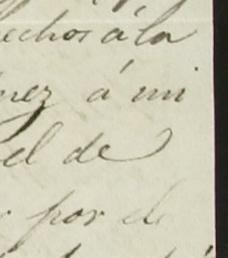 echos á la
nez á mi
el de
por el